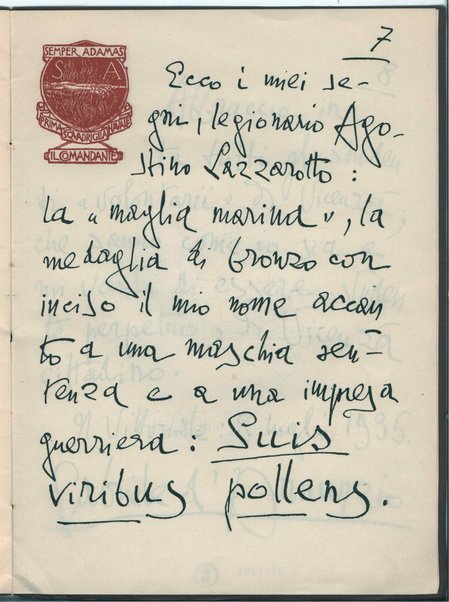 7
SEMPER ADAMAS
S A
PRIMA SQUADRIGLIA NAVALE
IL COMANDANTE
Ecco i miei se-
gni, legionario Ago-
stino Lazzarotto:
la «maglia marina», la
medaglia di bronzo con
inciso il mio nome accan-
to a una maschia sen-
tenza e a una impresa
guerriera: Suis
viribus pollens.